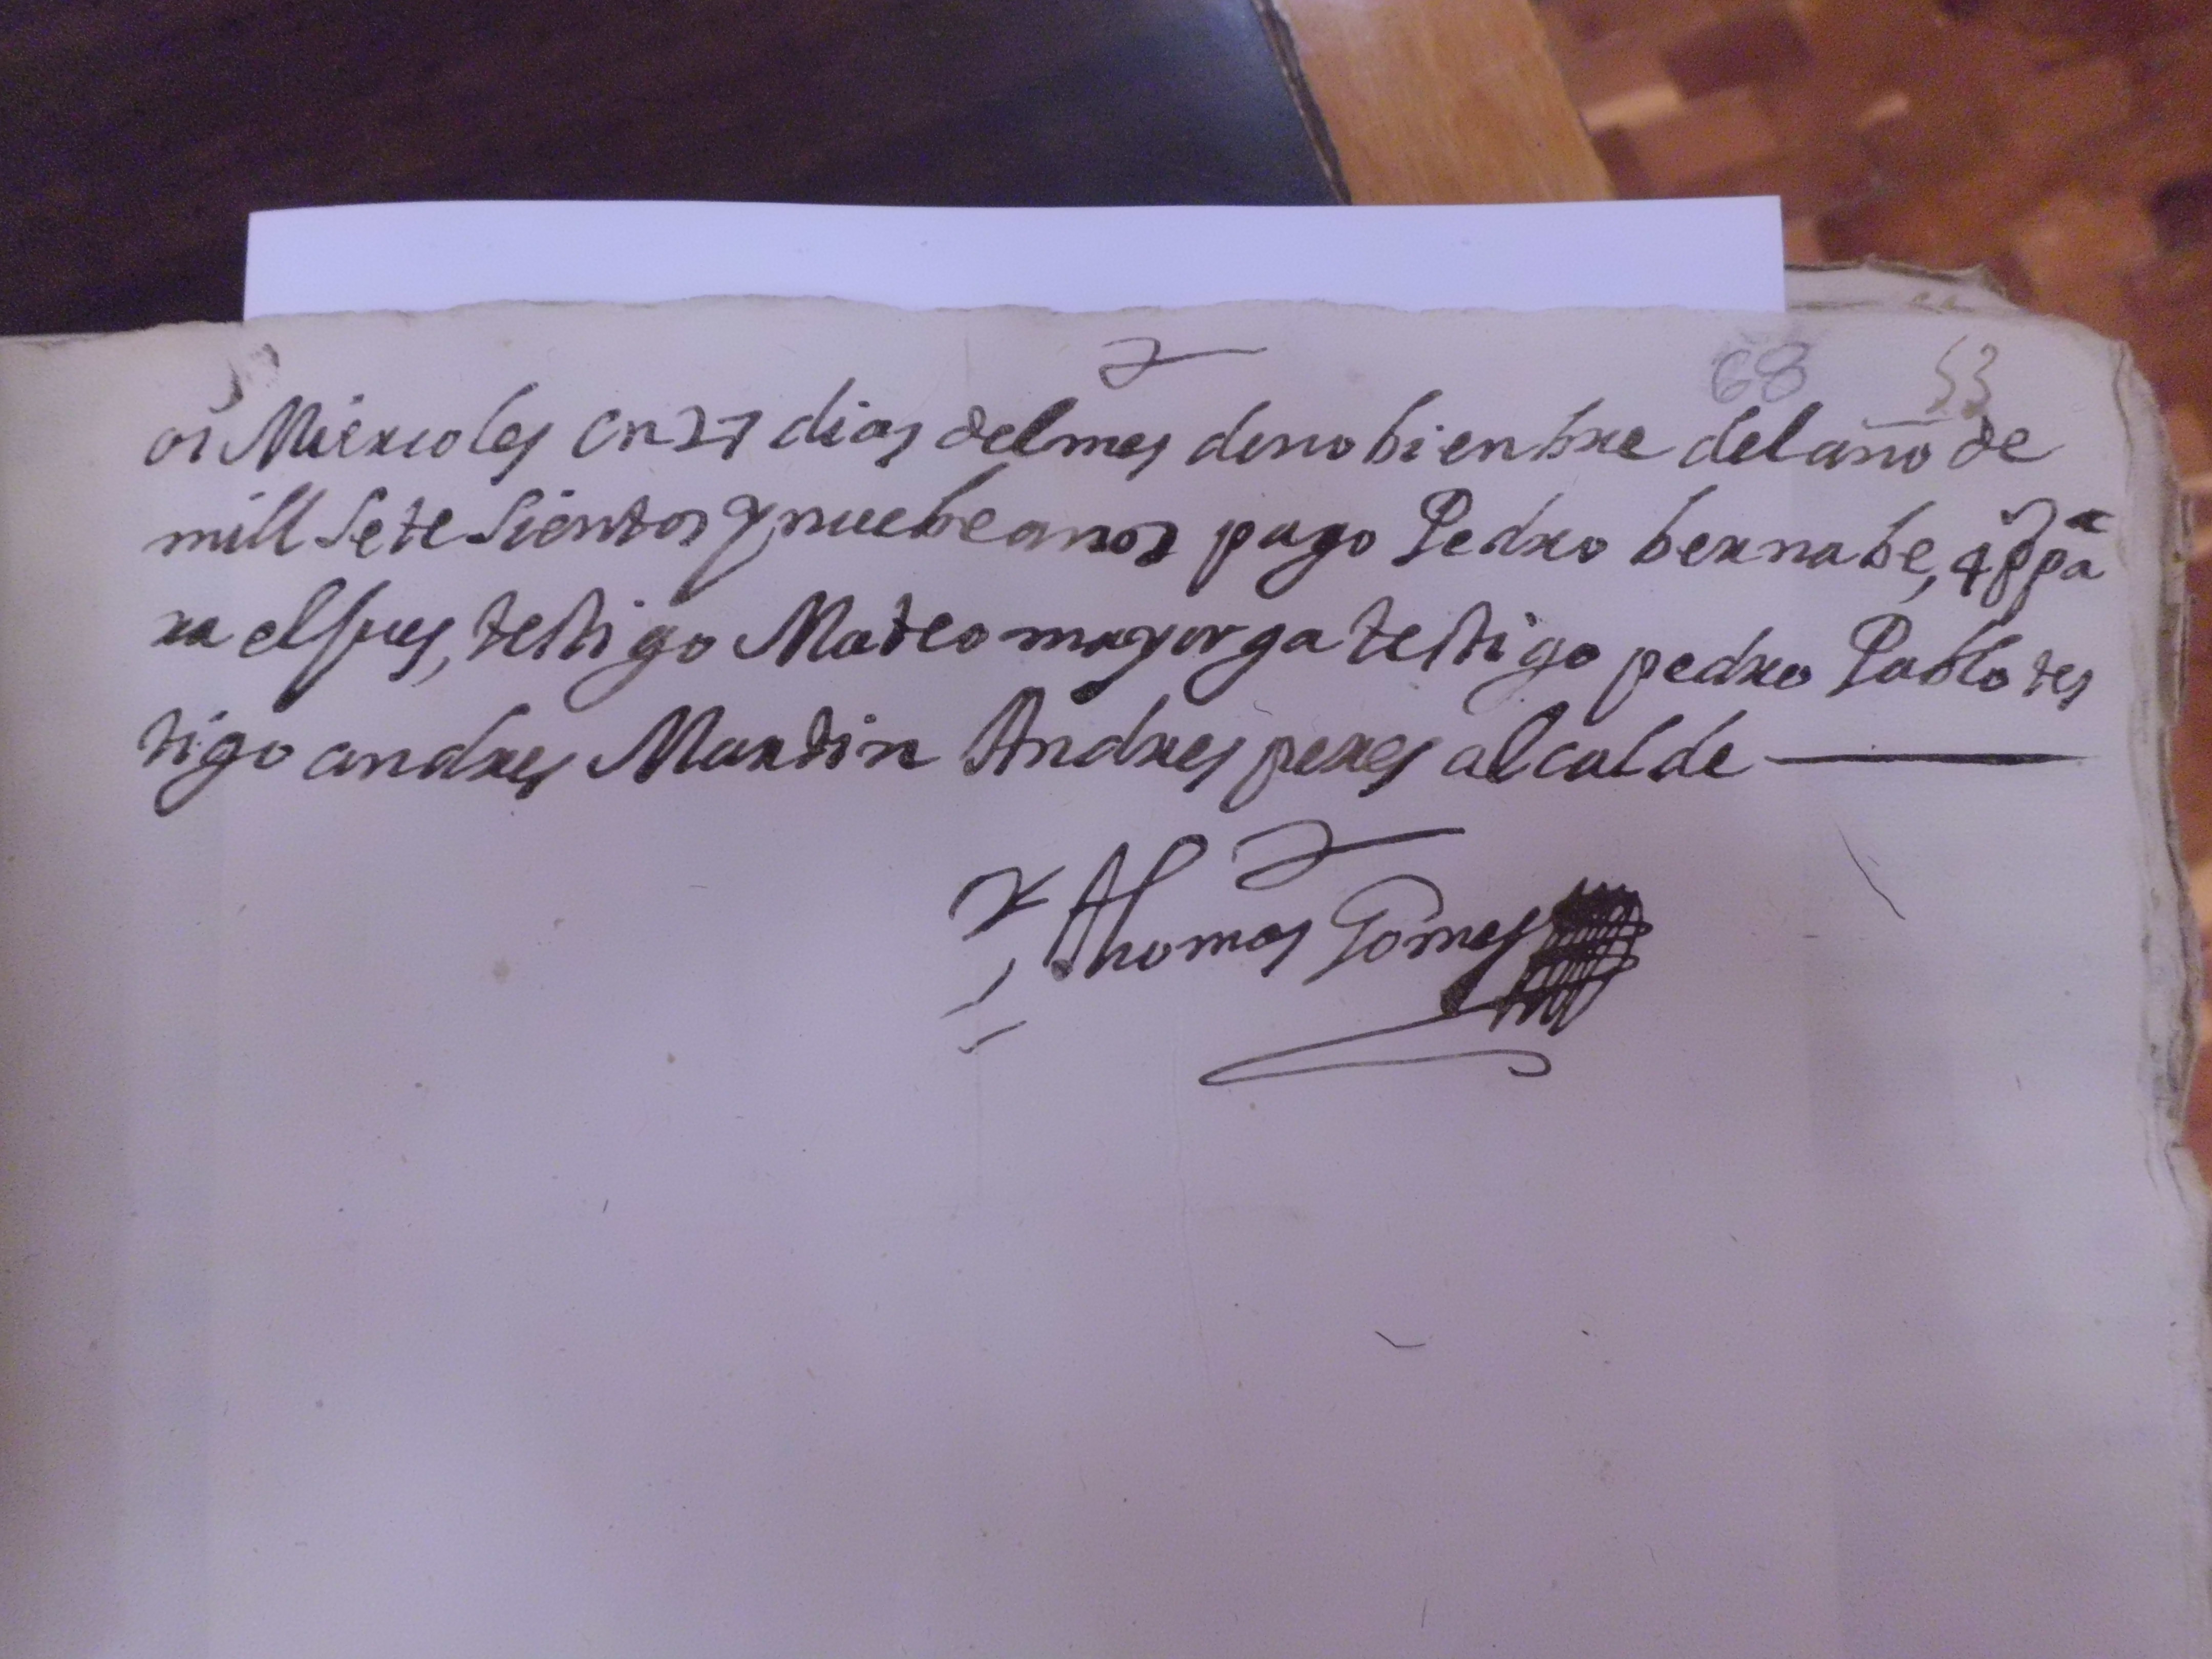 68 53
oi Miercoles en 27 dias del mes de nobienbre del año de
mill sete sientos y nuebe anos pago Pedro bernabe, 4 ps pa
ra el jues, testigo Mateo mayorga testigo pedro Pablo tes
tigo andres Martin Andres peres alcalde
Thomas Gomes